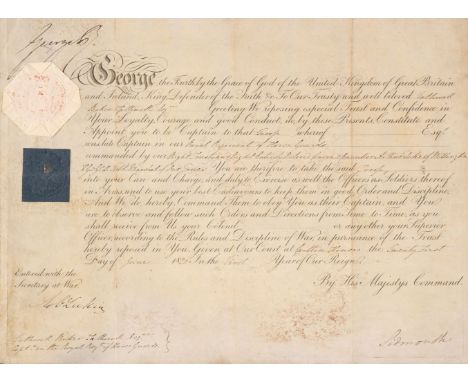 George R.
George the Fourth by the Grace of God of the United Kingdom of Great Britain
and Ireland, King, Defender of the Faith &c To Our Trusty and well beloved
Greeting We reposing especial Trust and Confidence in
Your Loyalty, Courage and good Conduct, do by these Presents, Constitute and
Appoint you to be Captain to that Troop whereof Esq.
was late Captain in our Royal Regiment of Horse Guards
commanded by our Right
You are therefore to take the said Troop
into your Care and Charge, and duly to Exercise as well the Officers as Soldiers thereof
in Arms, and to use your best Endeavours to keep them in good Order and Discipline,
And We do hereby Command them to Obey you as their Captain and You
are to observe and follow such Orders and Directions from Time to Time, as you
shall receive from Us your Colonel or any other your Superior
Officer, according to the Rules and Discipline of War in pursuance of the Trust
hereby reposed in You. Given at Our Court at Carlton House the Twenty First
Day of June 182 In the First Year of Our Reign.
By His Majestys Command.
Entered with the
Secretary at War
Sidmouth
Capt. in the Royal Regt. of Horse Guards